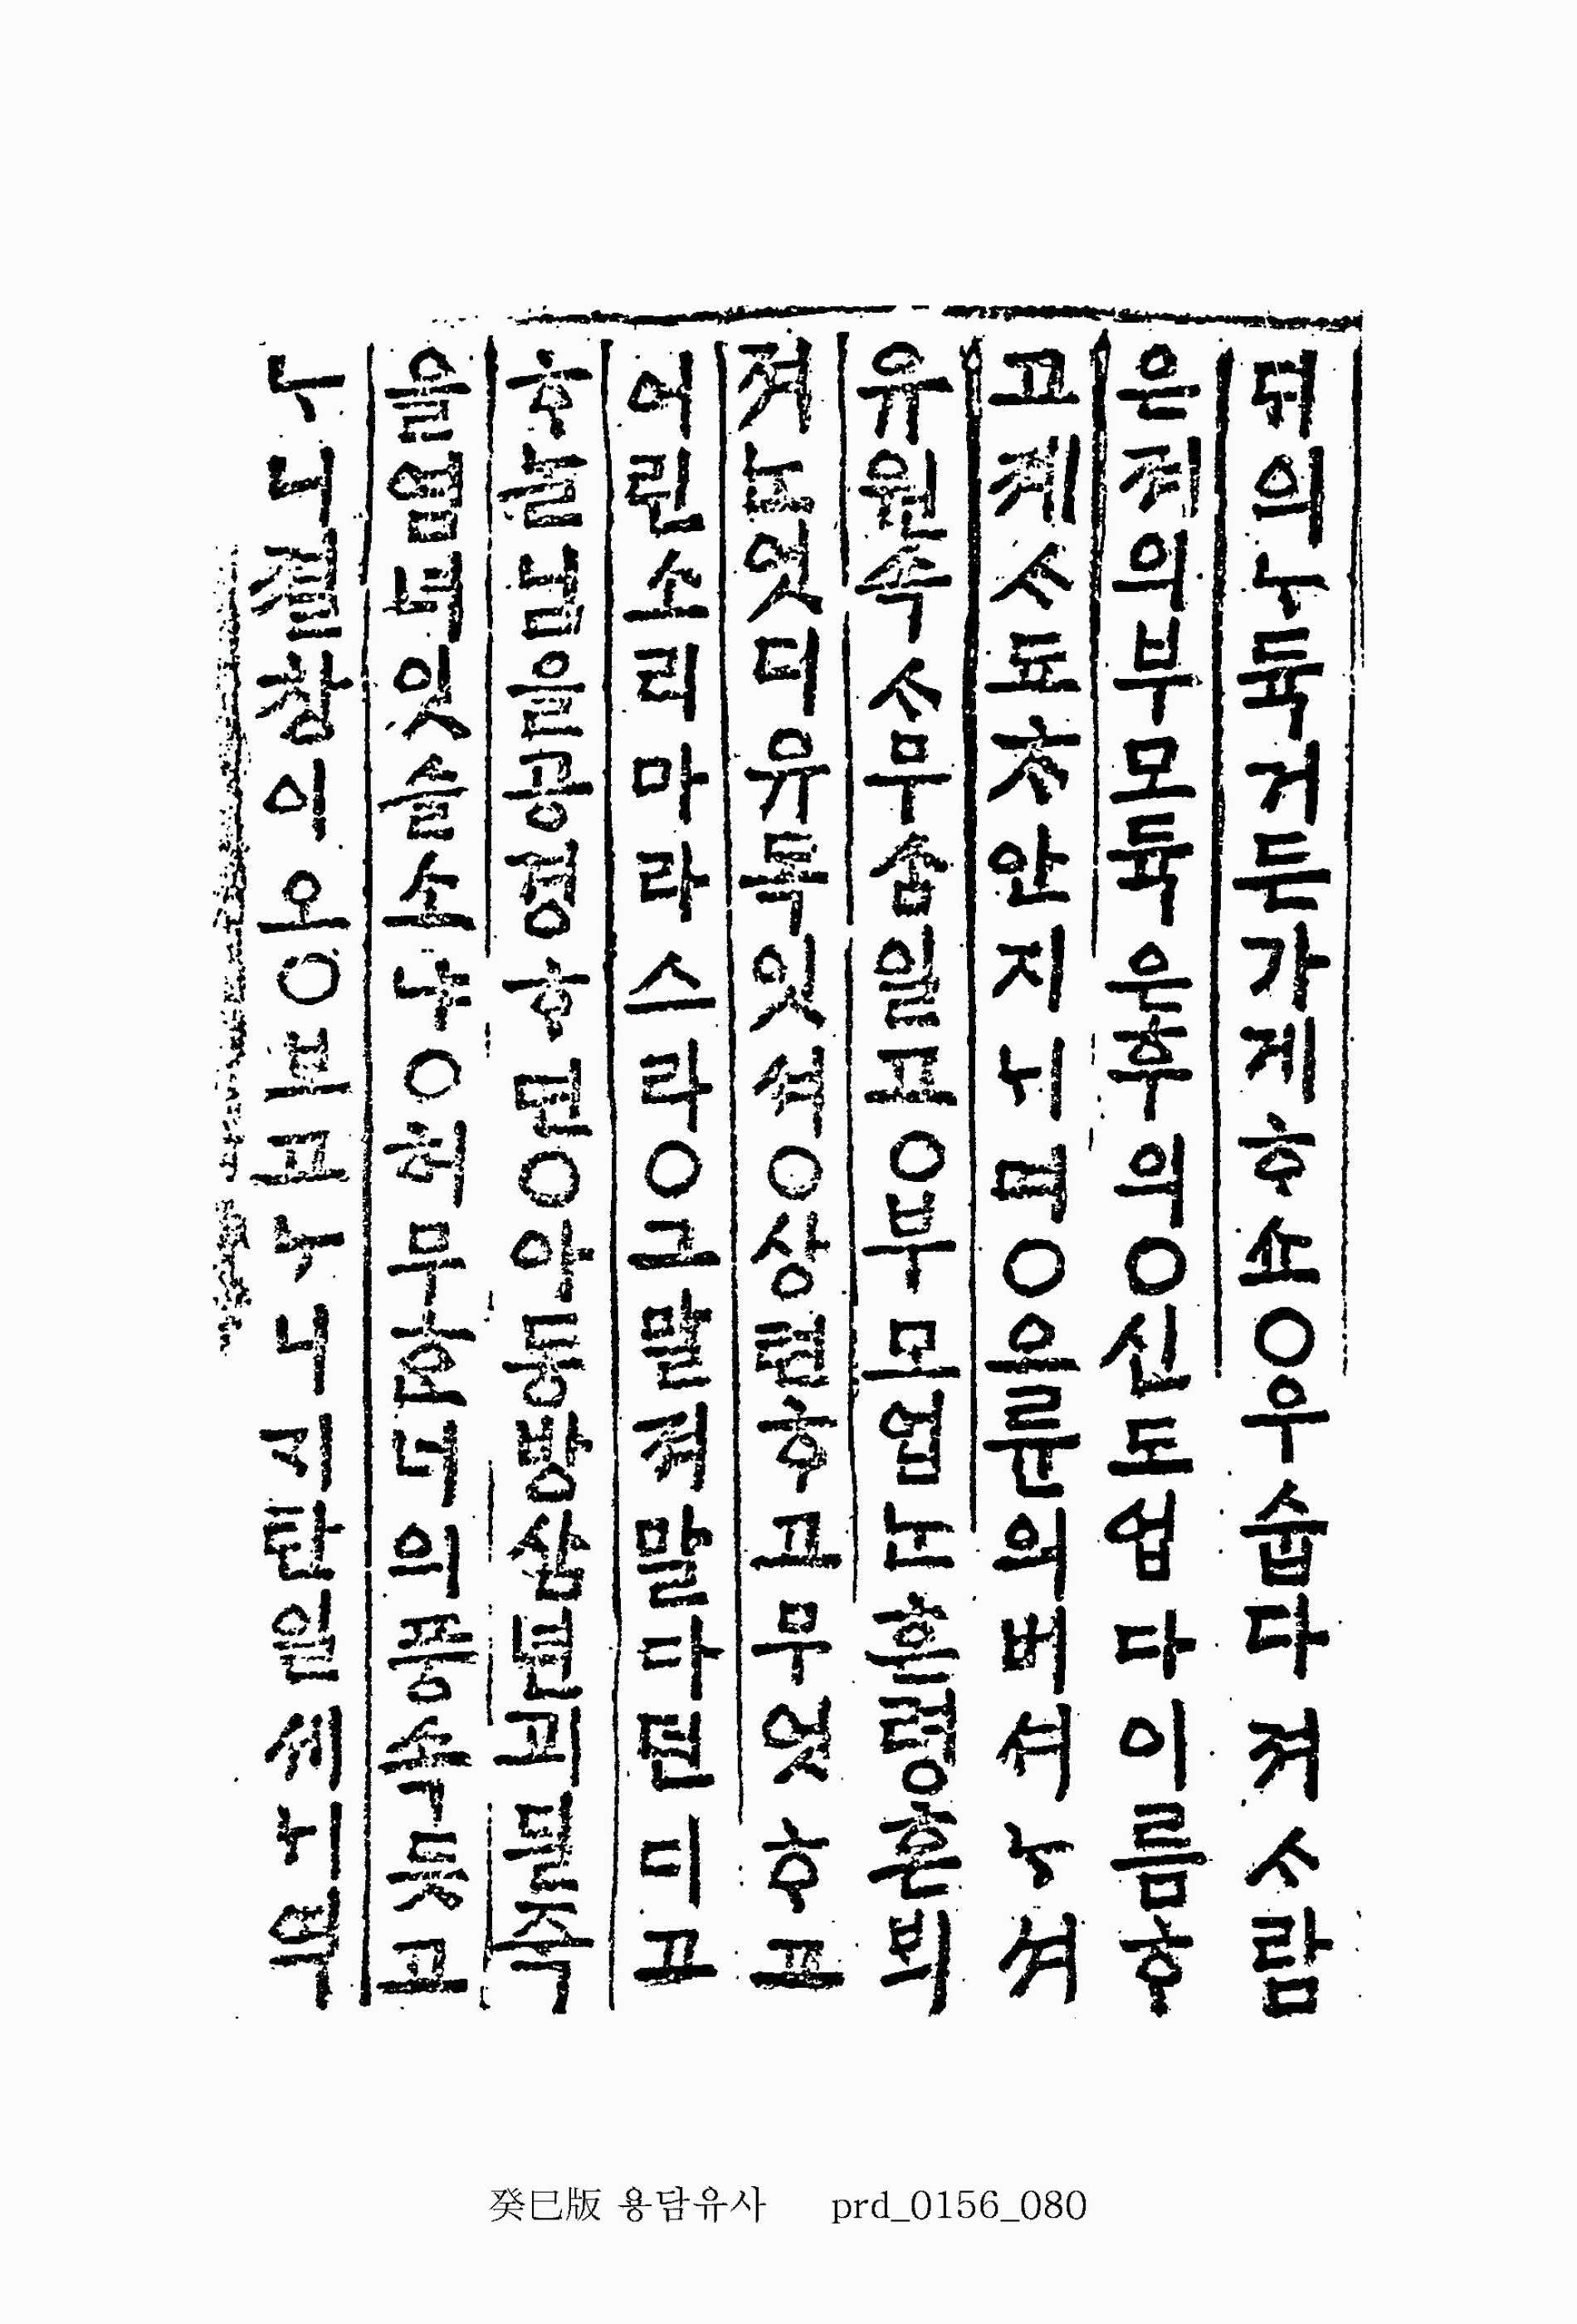 뒤의ᄂᆞ듁거든가게ᄒᆞ쇼○우숩다져ᄉᆞ람
은져의부모듁은후의○신도업다이름ᄒᆞ
고졔ᄉᆞ됴ᄎᆞ안지ᄂᆡ며○오륜의버셔ᄂᆞ셔
유원속ᄉᆞ무ᄉᆞᆷ일고○부모업ᄂᆞᆫ혼령혼ᄇᆡ
져ᄂᆞᆫ엇디유독잇셔○상텬ᄒᆞ고무엇ᄒᆞ고
어린소리마라스라○그말져말다던디고
ᄒᆞᄂᆞᆯ님을공경ᄒᆞ면○아동방삼년괴딜쥭
을염녀잇슬소냐○허무ᄒᆞᆫ너의풍속듯고
ᄂᆞ니졀창이오○보고ᄂᆞ니지탄일셰ᄂᆡ역
癸巳版 용담유사 prd_0156_080